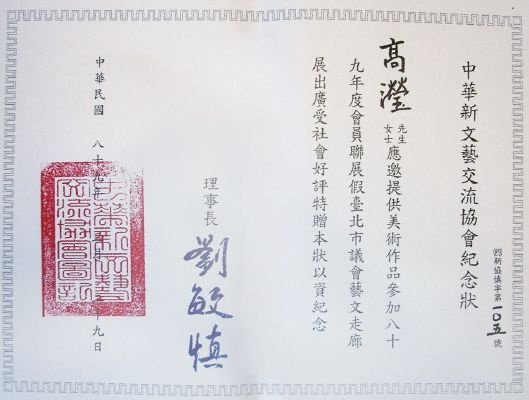 中華新文藝交流協會紀念狀
新協慎字第一〇五號
高瀅 先生 女士 應邀提供美術作品參加八十
九年度會員聯展假臺北市議會藝文走廊
展出廣受社會好評特贈本狀以資紀念
理事長 劉敏慎
中華民國 八十九年 月 十九日
中華新文藝交流協會圖記